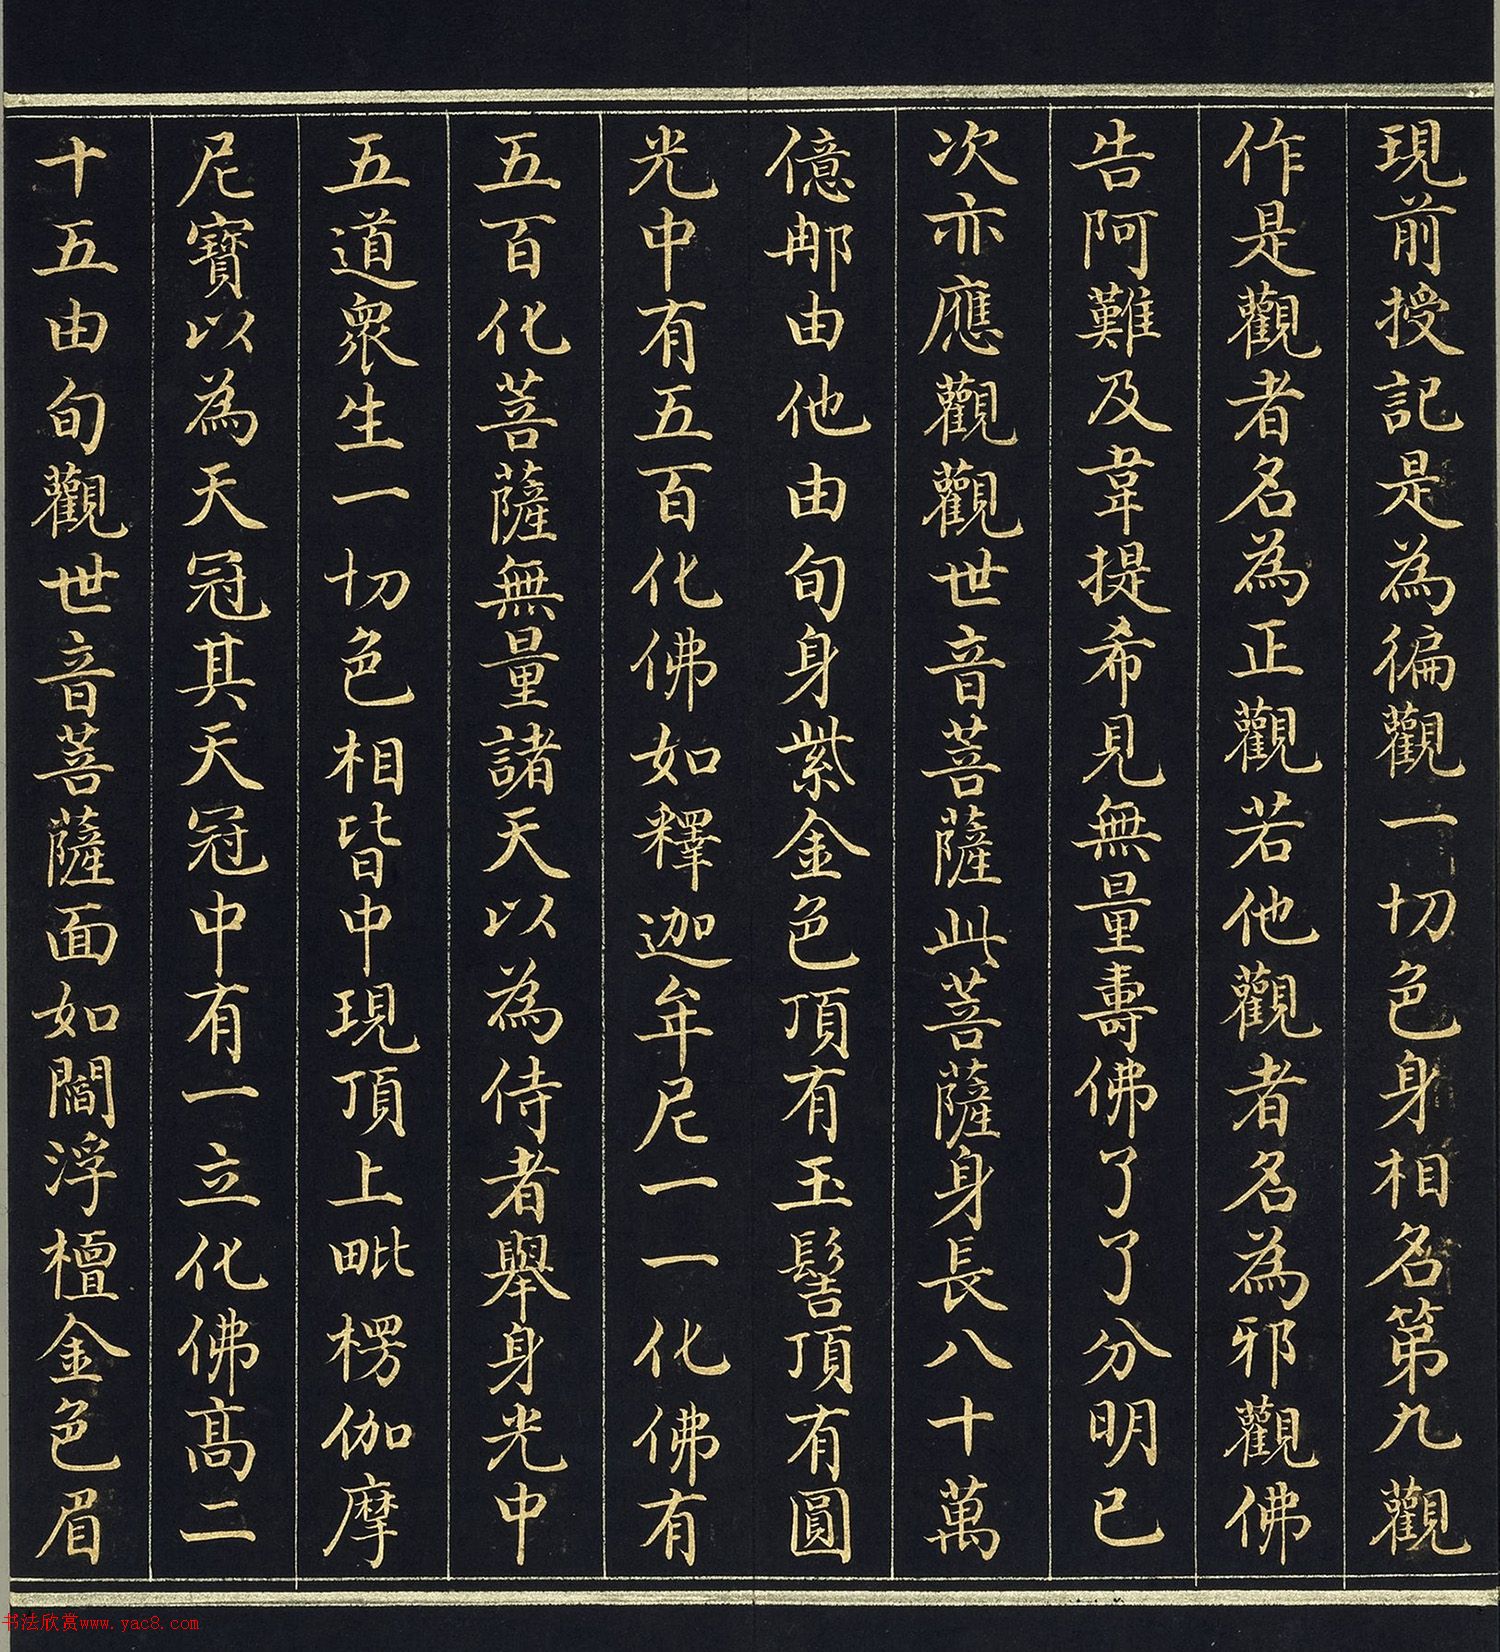 現前授記是為徧觀一切色身相名第九觀
作是觀者名為正觀若他觀者名為邪觀佛
告阿難及韋提希見無量壽佛了了分明已
次亦應觀觀世音菩薩此菩薩身長八十萬
億那由他由旬身紫金色頂有玉髻頂有圓
光中有五百化佛如釋迦牟尼一一化佛有
五百化菩薩無量諸天以為侍者舉身光中
五道眾生一切色相皆中現頂上毗楞伽摩
尼寶以為天冠其天冠中有一立化佛高二
十五由旬觀世音菩薩面如閻浮檀金色眉
书法欣赏www.yac8.com